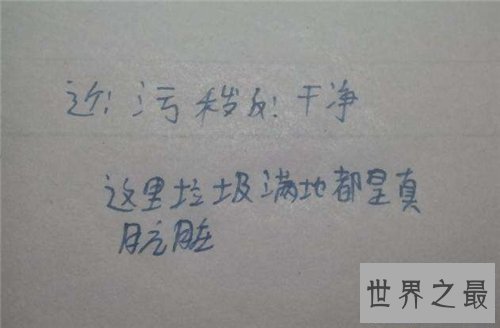 近: 污秽 反: 干净
这里垃圾满地都是真
肮脏
世界之最